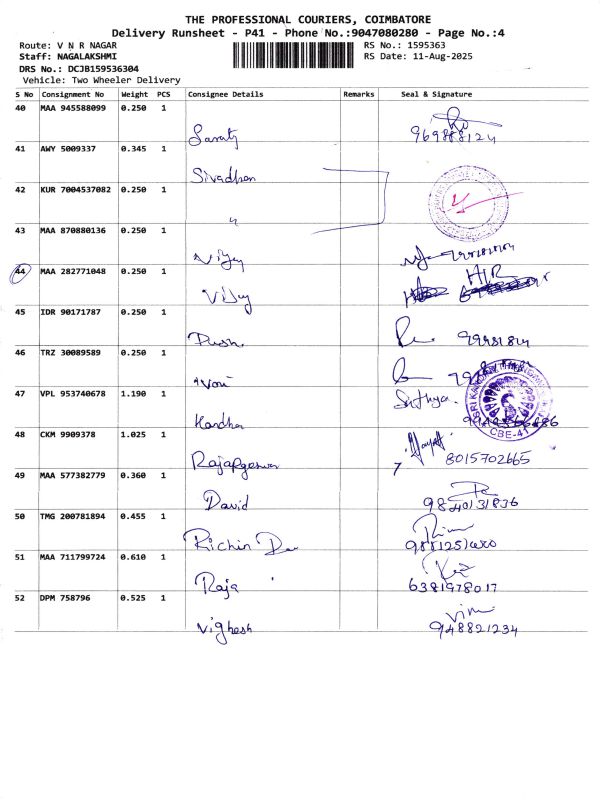 THE PROFESSIONAL COURIERS, COIMBATORE
Delivery Runsheet - P41 - Phone No.:9047080280 - Page No.:4
Route: V N R NAGAR
RS No.: 1595363
Staff: NAGALAKSHMI
RS Date: 11-Aug-2025
DRS No.: DCJB159536304
Vehicle: Two Wheeler Delivery
S No Consignment No Weight PCS Consignee Details Remarks Seal & Signature
40 MAA 945588099 0.250 1
41 AWY 5009337 0.345 1
42 KUR 7004537082 0.250 1
43 MAA 870880136 0.250 1
Vijay
44 MAA 282771048 0.250 1
Vijay
45 IDR 90171787 0.250 1
46 TRZ 30089589 0.250 1
47 VPL 953740678 1.190 1
Sathya.
CBE-41
48 CKM 9909378 1.025 1
8015702665
49 MAA 577382779 0.360 1
David 9840131836
50 TMG 200781894 0.455 1
51 MAA 711799724 0.610 1
Raja 6381978017
52 DPM 758796 0.525 1
Vighesh 948821234